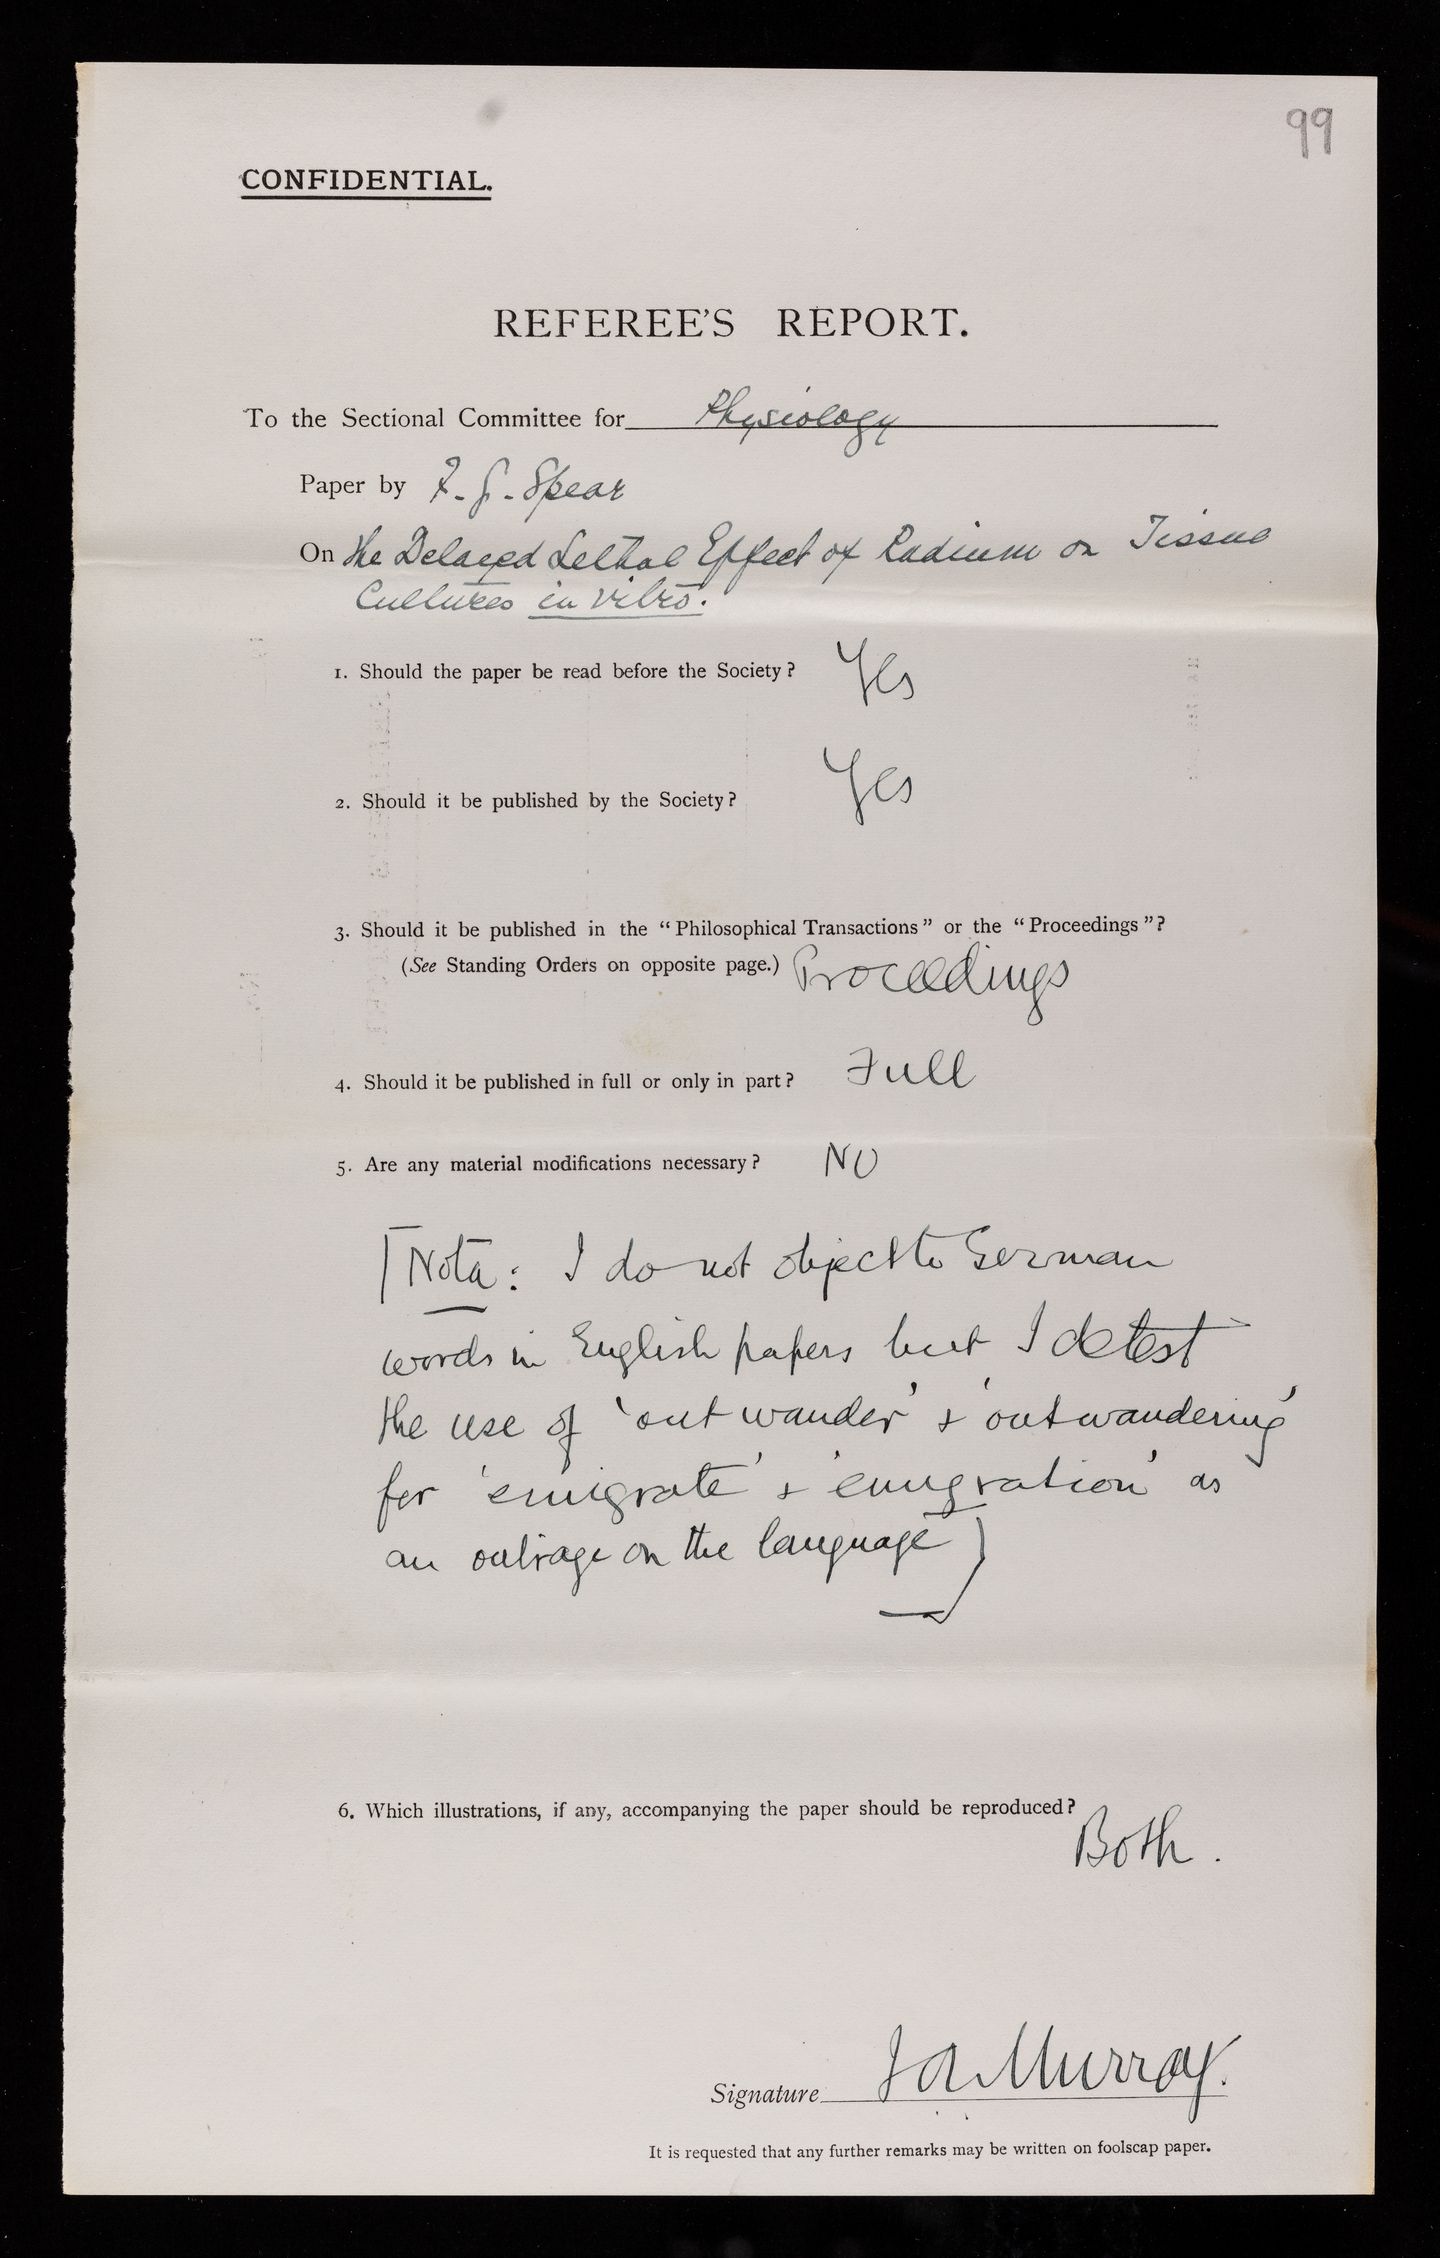 99
CONFIDENTIAL.
REFEREE'S REPORT.
To the Sectional Committee for Physiology
Paper by F. G. Spear
On The Delayed Lethal Effect of Radium on Tissue
Cultures in vitro.
1. Should the paper be read before the Society? Yes
2. Should it be published by the Society? Yes
3. Should it be published in the "Philosophical Transactions" or the "Proceedings"?
(See Standing Orders on opposite page.) Proceedings
4. Should it be published in full or only in part? Full
5. Are any material modifications necessary? No
[Nota: I do not object to German
words in English papers but I detest
the use of 'outwander' & 'outwandering'
for 'emigrate' & 'emigration' as
an outrage on the language]
6. Which illustrations, if any, accompanying the paper should be reproduced?
Both.
Signature J A Murray.
It is requested that any further remarks may be written on foolscap paper.